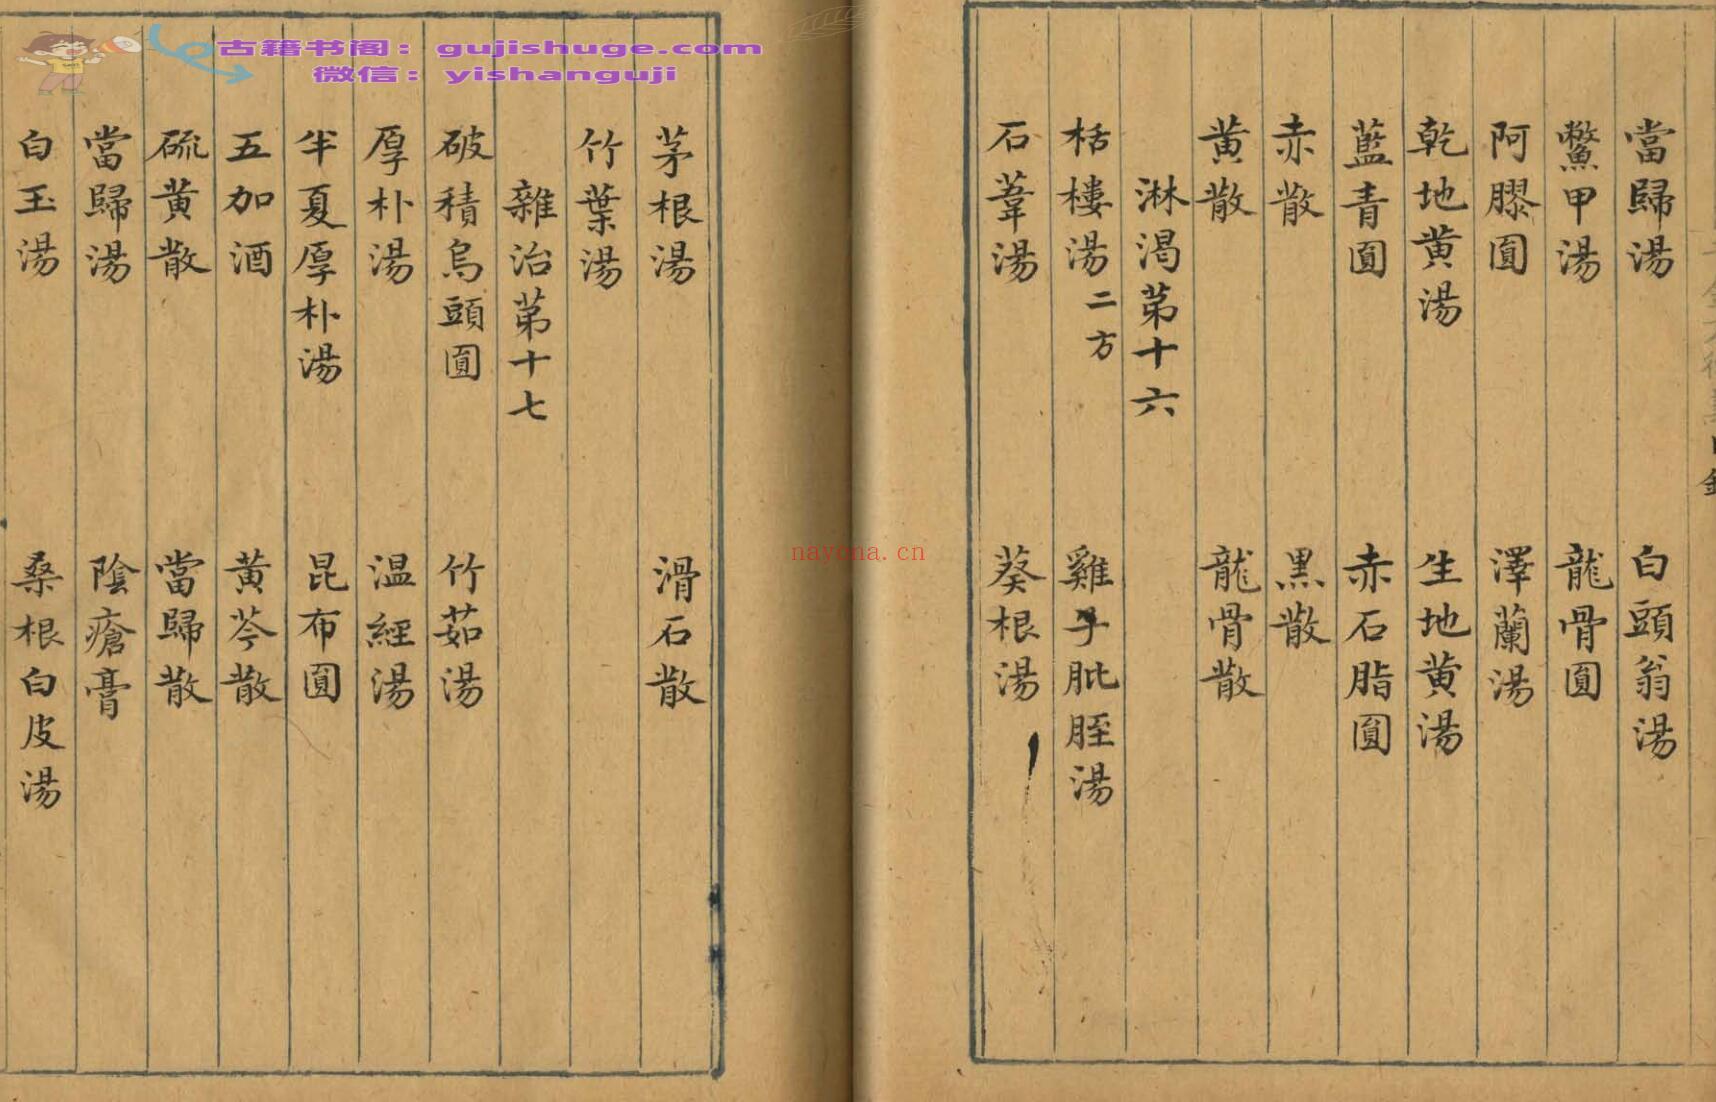 當歸湯 白頭翁湯
鱉甲湯 龍骨圓
阿膠圓 澤蘭湯
乾地黄湯 生地黄湯
藍青圓 赤石脂圓
赤散 黒散
黄散 龍骨散
淋渴苐十六
栝樓湯二方 雞子肶胵湯
石葦湯 葵根湯
茅根湯 滑石散
竹葉湯
雜治苐十七
破積烏頭圓 竹茹湯
厚朴湯 温經湯
半夏厚朴湯 昆布圓
五加酒 黄芩散
硫黄散 當歸散
當歸湯 陰瘡膏
白玉湯 桑根白皮湯
古籍书阁：gujishuge.com
微信：yishanguji
nayona.cn